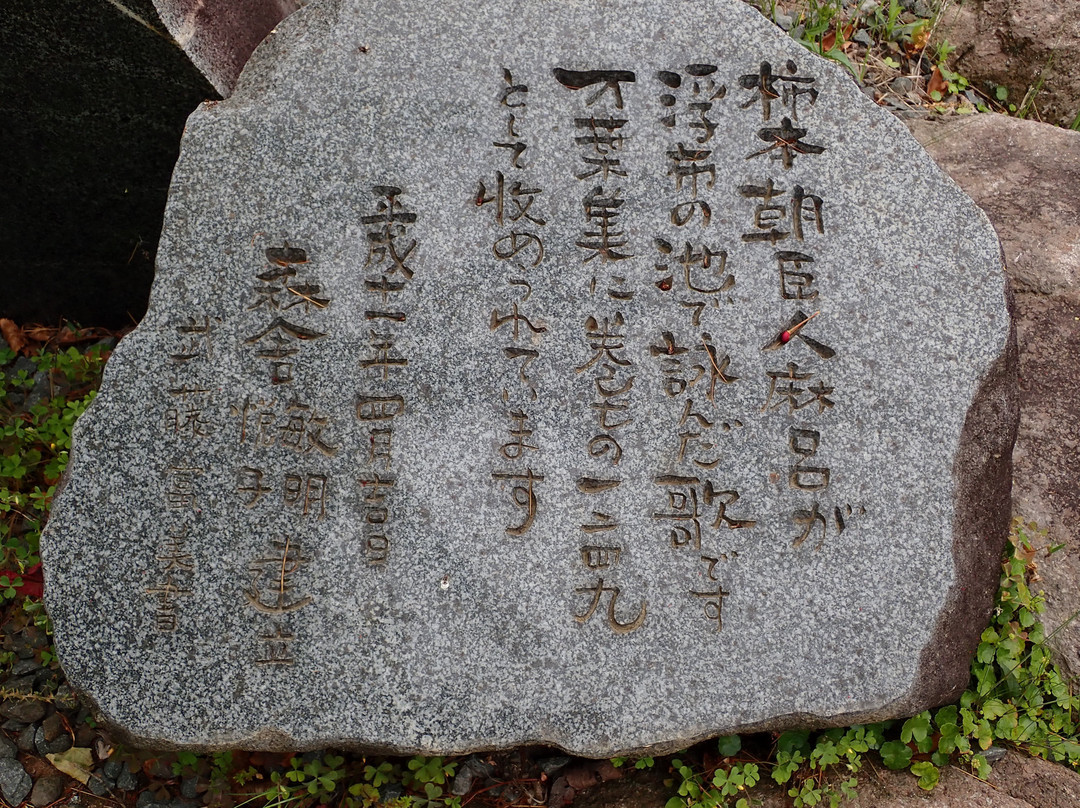 柿本朝臣人麻呂が
浮布の池で詠んだ歌です
万葉集に巻七の一二四九
として收められています
平成十一年四月吉日
森舎 敏明 子 建立
武藤 美書